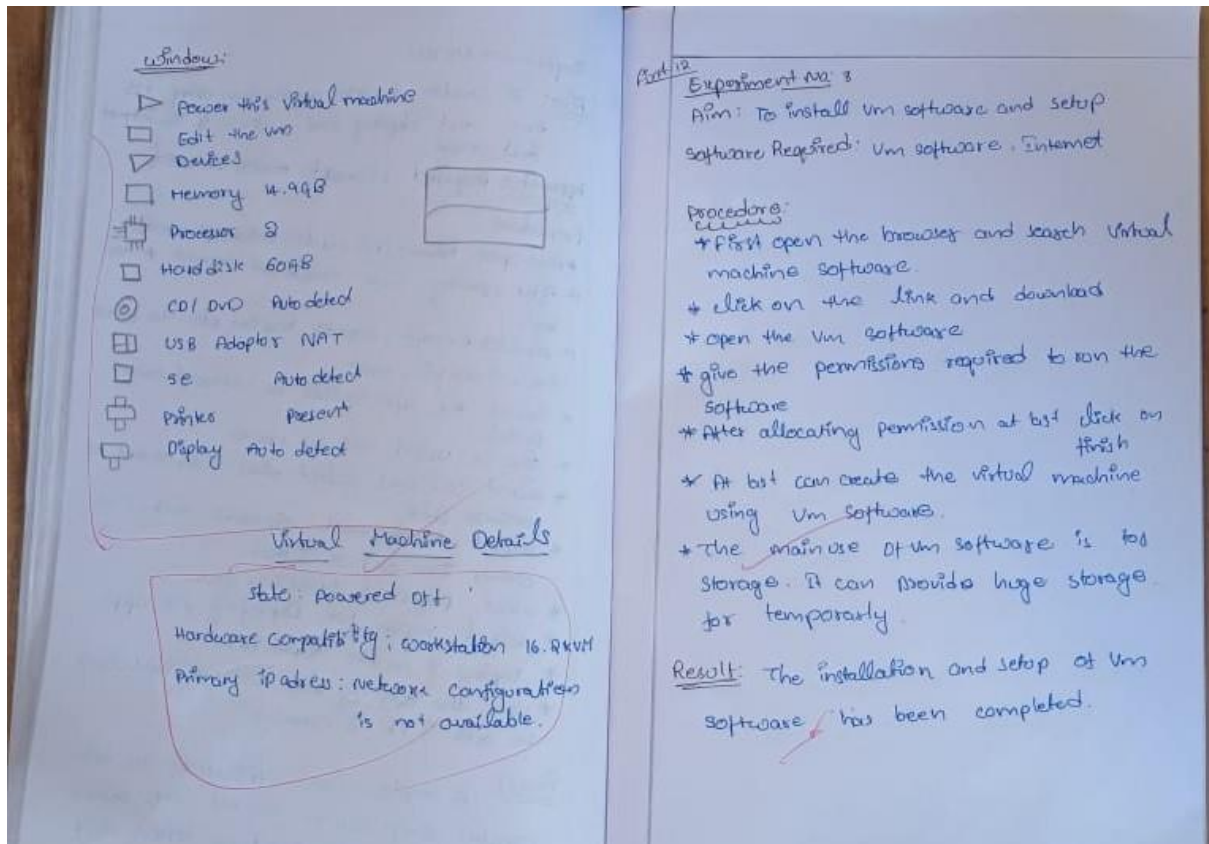 Windows:
Power this virtual machine
Edit the vm
Devices
Memory 14.9GB
Processor 2
Hard disk 60GB
CD/ DVD Auto detect
USB Adaptor NAT
se Auto detect
Printer Present
Display Auto detect
Virtual Machine Details
state: powered off
Hardware compatibility: workstation 16.
Primary ip adress: Network configuration
is not available.
12
Experiment No: 8
Aim: To install vm software and setup
Software Required: Vm software, Internet
Procedure:
* First open the browser and search virtual
machine software.
* click on the link and download
* open the Vm software
* give the permissions required to run the
software
* After allocating permission at last click on
finish
* At last can create the virtual machine
using Vm software.
* The main use of vm software is for
storage. It can provide huge storage
for temporarly.
Result: The installation and setup of Vm
software has been completed.